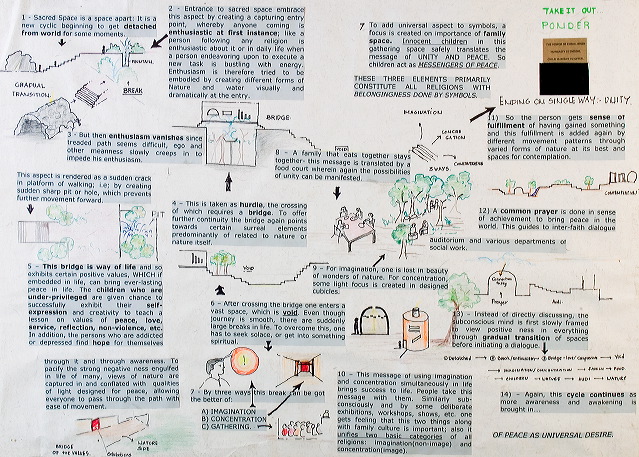 1 - Sacred Space is a space apart: It is a
new cyclic beginning to get detached
from world for some moments.
FOUNTAIN
GRADUAL
TRANSITION.
BREAK
2 - Entrance to sacred space embrace
this aspect by creating a capturing entry
point, whereby anyone coming is
enthusiastic at first instance; like a
person following any religion is
enthusiastic about it or in daily life when
a person endeavouring upon to execute a
new task is bustling with energy.
Enthusiasm is therefore tried to be
embodied by creating different forms of
Nature and water visually and
dramatically at the entry.
BRIDGE
3 - But then enthusiasm vanishes since
treaded path seems difficult, ego and
other meanness slowly creeps in to
impede his enthusiasm.
This aspect is rendered as a sudden crack
in platform of walking, i.e; by creating
sudden sharp pit or hole, which prevents
further movement forward.
PIT
4 - This is taken as hurdle, the crossing
of which requires a bridge. To offer
further continuity the bridge again points
towards certain surreal elements
predominantly of related to nature or
nature itself.
VOID
5 - This bridge is way of life and so
exhibits certain positive values, WHICH if
embedded in life, can bring ever-lasting
peace in life. The children who are
under-privileged are given chance to
successfully exhibit their self-
expression and creativity to teach a
lesson on values of peace, love,
service, reflection, non-violence, etc.
In addition, the persons who are addicted
or depressed find hope for themselves
through it and through awareness. To
pacify the strong negative ness engulfed
in life of many, views of nature are
captured in and conflated with qualities
of light designed for peace, allowing
everyone to pass through the path with
ease of movement.
BRIDGE
OF THE VALUES.
Exhibitions
NATURE
SIDE
6 - After crossing the bridge one enters a
vast space, which is void. Even though
journey is smooth, there are suddenly
large breaks in life. To overcome this, one
has to seek solace, or get into something
spiritual.
7 - By three ways this break can be got
the better of:
A) IMAGINATION
B) CONCENTRATION
C) GATHERING.
7 To add universal aspect to symbols, a
focus is created on importance of family
space. Innocent children in this
gathering space safely translates the
message of UNITY AND PEACE. So
children act as MESSENGERS OF PEACE.
THESE THREE ELEMENTS PRIMARILY
CONSTITUTE ALL RELIGIONS WITH
BELONGINGNESS DONE BY SYMBOLS.
8 - A family that eats together stays
together- this message is translated by a
food court wherein again the possibilities
of unity can be manifested.
IMAGINATION
3 WAYS
9 - For imagination, one is lost in beauty
of wonders of nature. For concentration,
some light focus is created in designed
cubicles.
10 - This message of using imagination
and concentration simultaneously in life
brings success to life. People take this
message with them. Similarly sub-
consciously and by some deliberate
exhibitions, workshops, shows, etc. one
gets feeling that this two things along
with family culture is important; also it
unifies two basic categories of all
religions: imagination(non-image) and
concentration(image).
TAKE IT OUT
PONDER
ENDING ON SINGLE WAY:- UNITY.
11) So the person gets sense of
fulfillment of having gained something
and this fulfillment is added again by
different movement patterns through
varied forms of nature at its best and
spaces for contemplation.
12) A common prayer is done in sense
of achievement to bring peace in the
world. This guides to inter-faith dialogue
auditorium and various departments of
social work.
Prayer
Audi.
13) - Instead of directly discussing, the
subconscious mind is first slowly framed
to view positive ness in everything
through gradual transition of spaces
before initiating a dialogue.
14) - Again, this cycle continues as
more awareness and awakening is
brought in...
OF PEACE AS UNIVERSAL DESIRE.